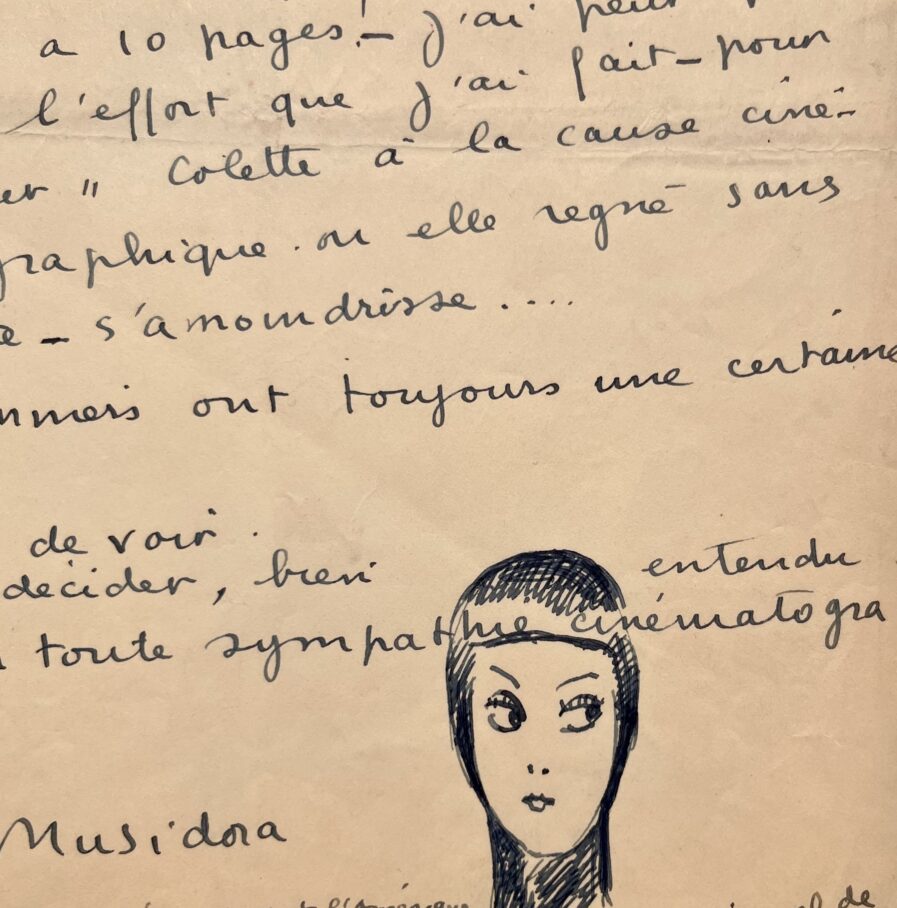 a 10 pages! - j'ai peur
l'effort que j'ai fait - pour
er " Colette à la cause ciné-
graphique. ou elle regné sans
e - s'amoindrisse .....
ont toujours une certaine
de voir.
décider, bien entendu
toute sympathie cinématogra
Musidora
l'Amérique de